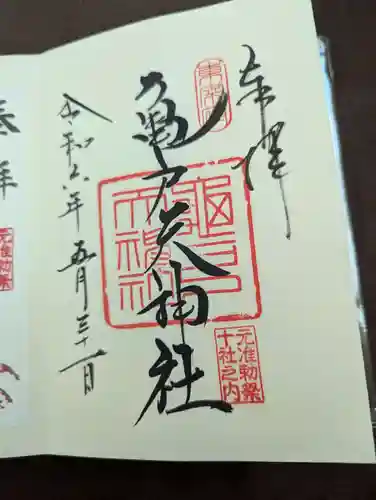 奉拝
亀戸天神社
令和六年五月三十一日
元准勅祭
十社之内
元准勅祭